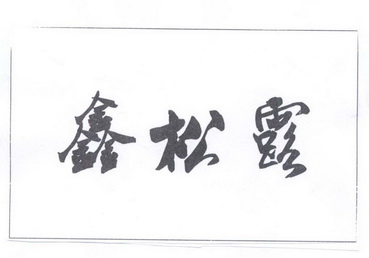 鑫松露